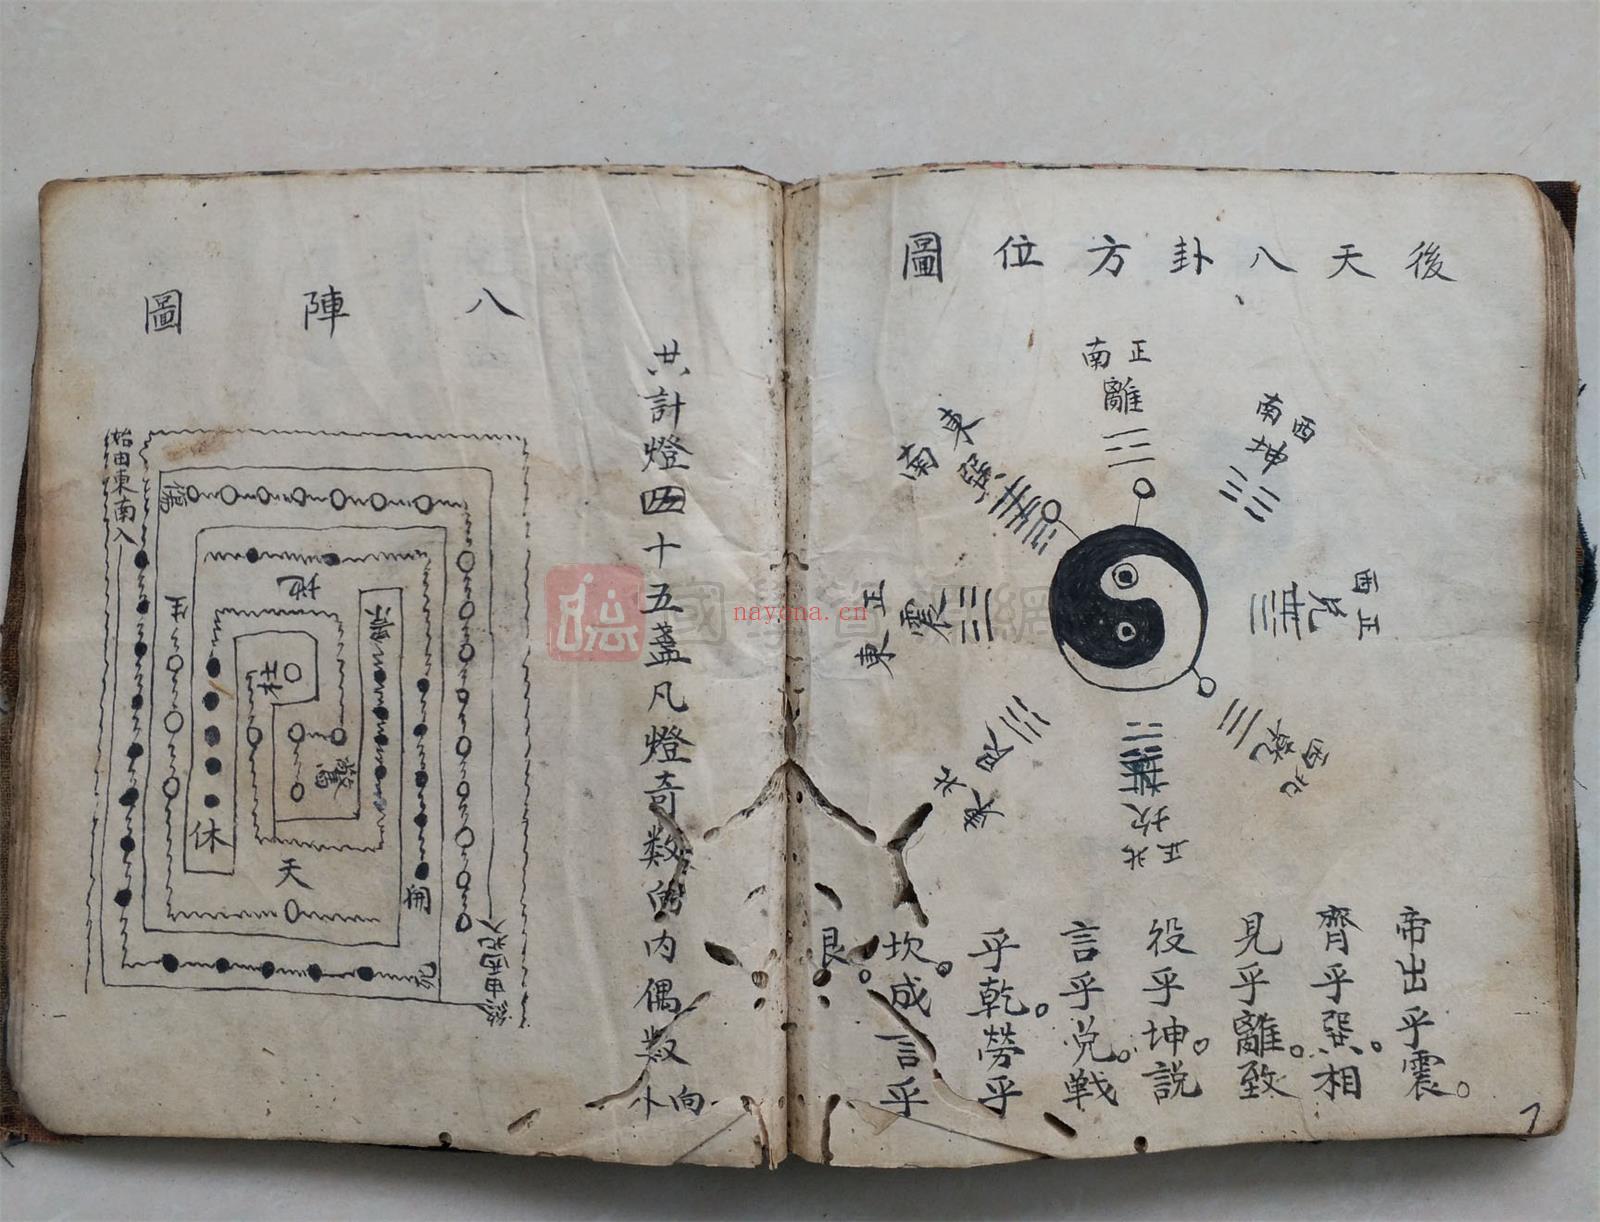 後天八卦方位圖
正南
離
西南
坤
正西
兌
西北
乾
正北
坎
東北
艮
正東
震
東南
巽
帝出乎震。
齊乎巽。相
見乎離。致
役乎坤。說
言乎兌。戰
乎乾。勞乎
坎。成言乎
艮。
共計燈四十五盞凡燈奇数向内偶数向外
八陣圖
始由東南入
傷
生
地
景
柱
驚
休
天
開
死
終由西北入
國學資源網
nayona.cn